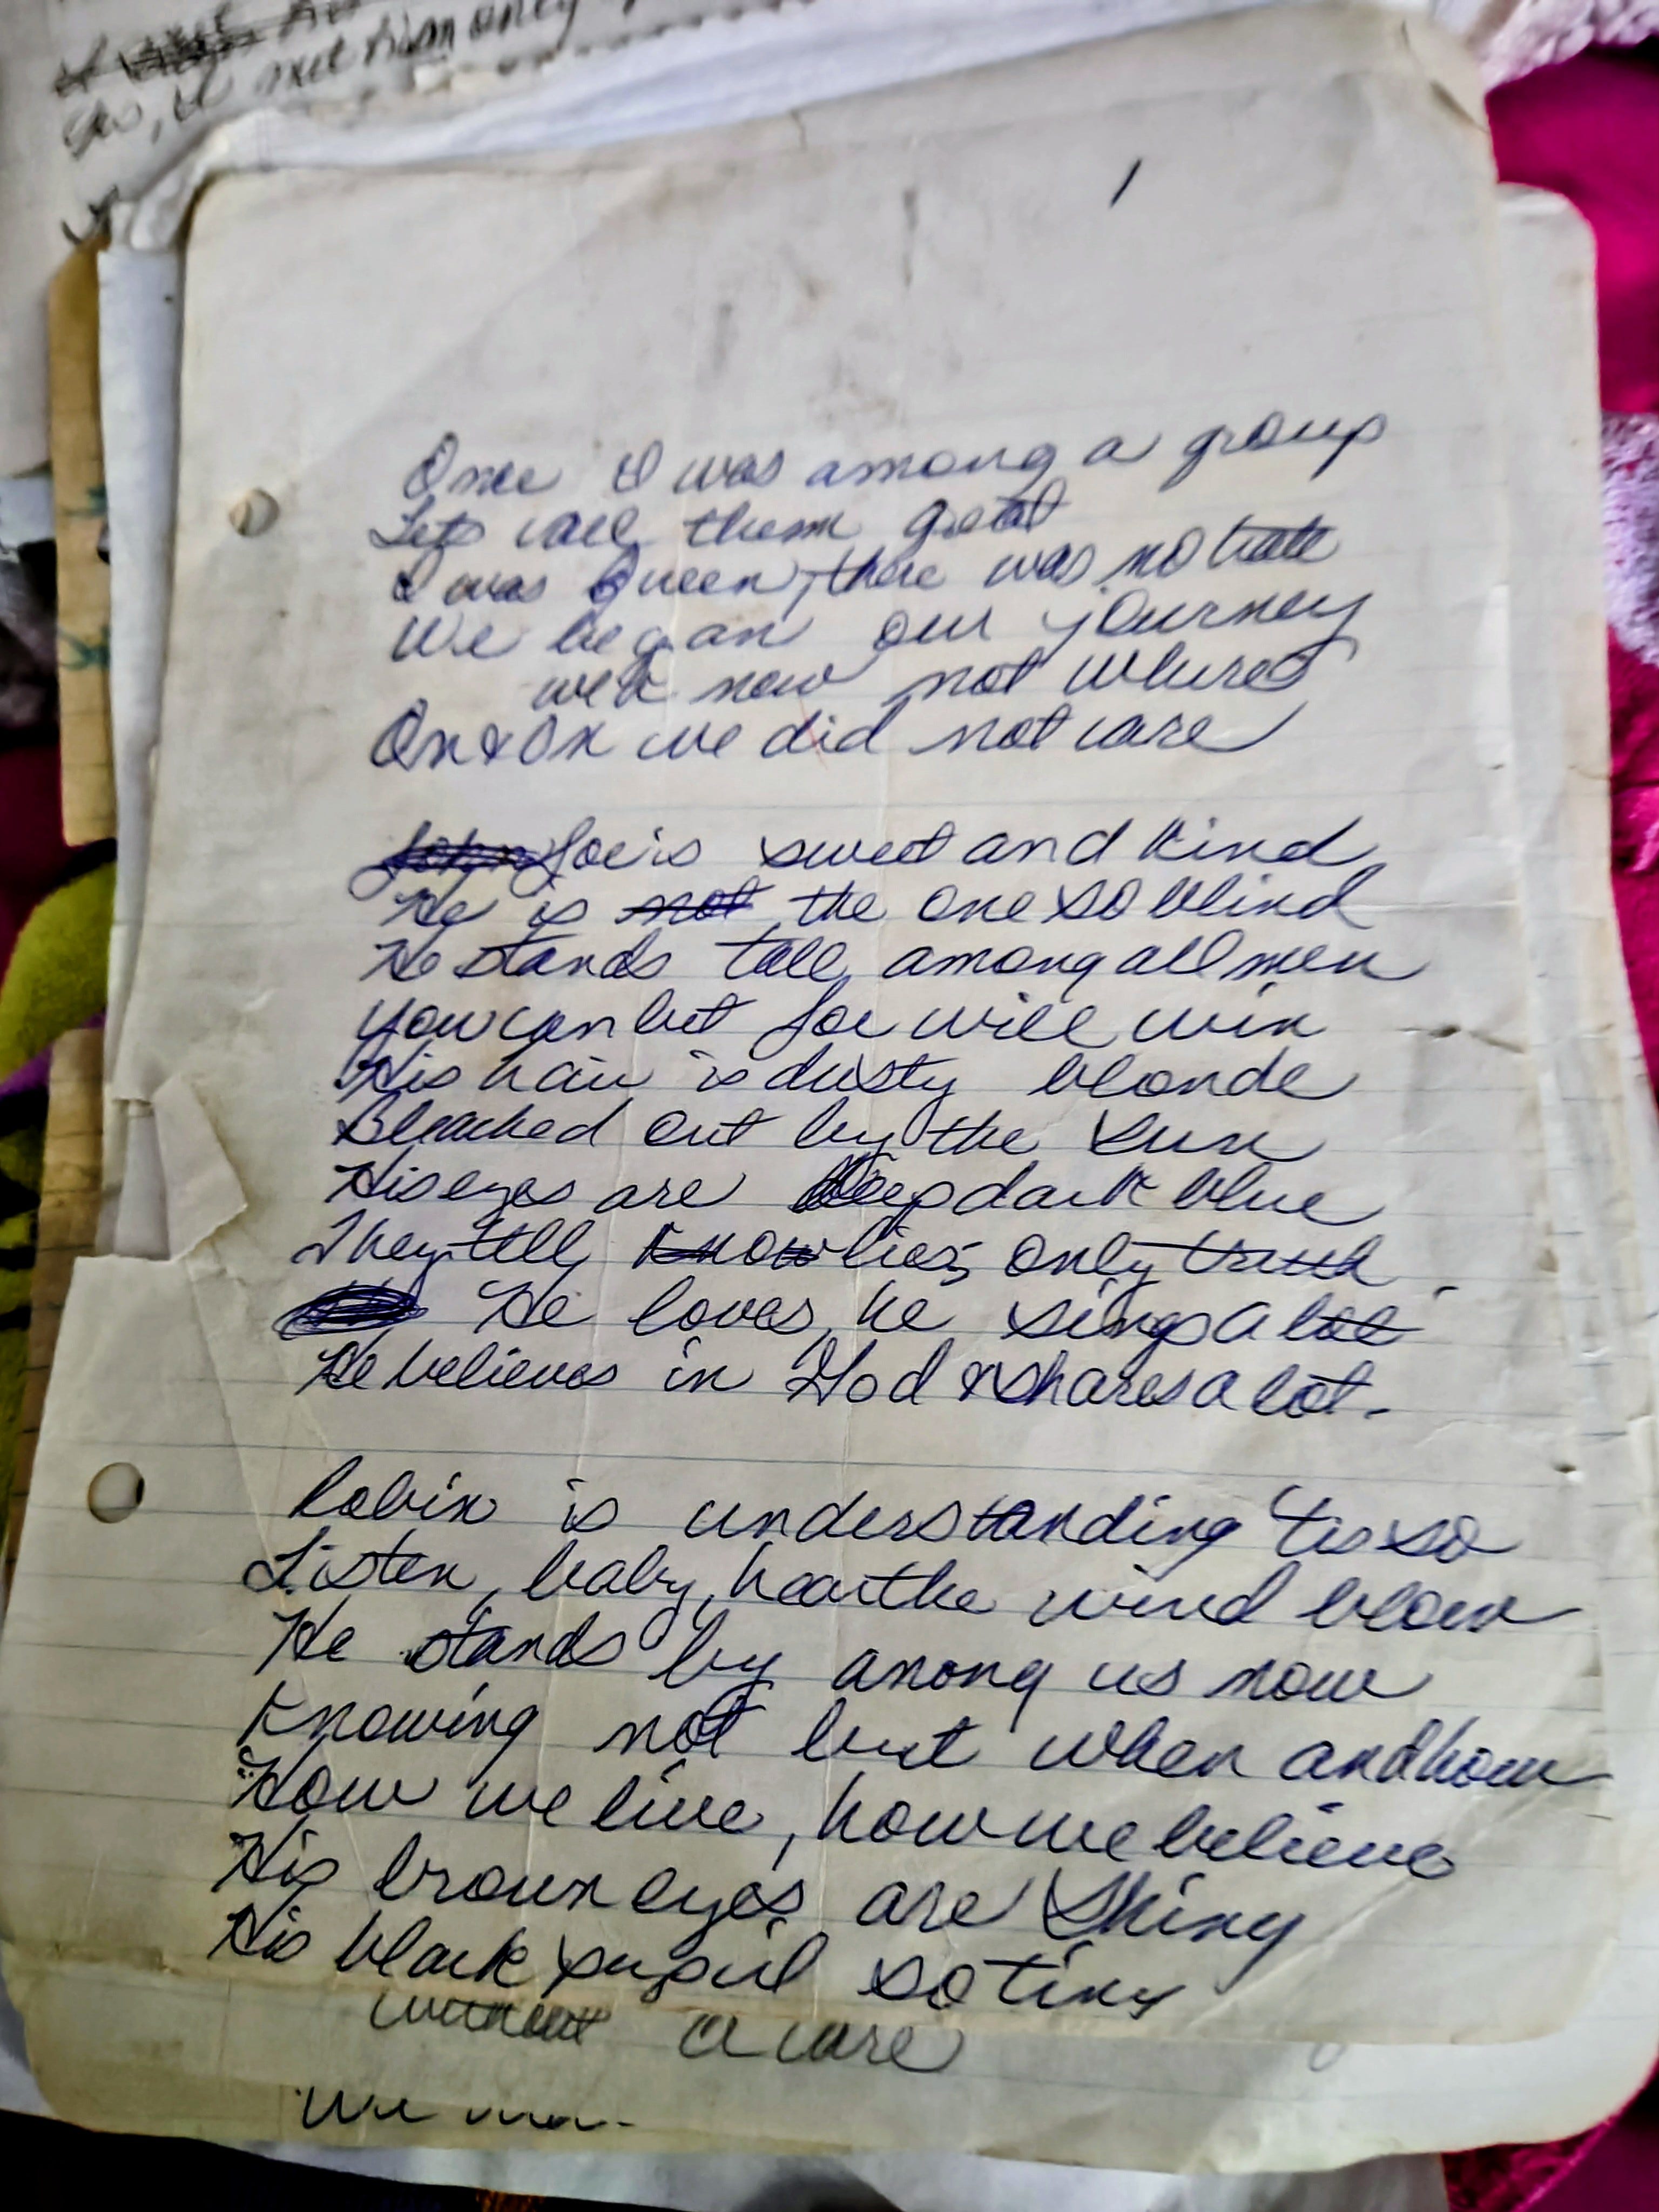 so, I met him only
1
Once I was among a group
Lets call them great
I was Queen, there was no hate
We began our journey
we know not where
On & On we did not care
John Joe is sweet and kind
He is not the one so blind
He stands tall among all men
You can bet Joe will win
His hair is dusty blonde
Bleached out by the sun
His eyes are deep dark blue
They tell know lies, only truth
He loves, he sings a lot
He believes in God & shares a lot.
Robin is understanding tis so
Listen, baby, hear the wind blow
He stands by anong us now
Knowing not but when and how
How we live, how we believe
His brown eyes are shiny
His black pupil so tiny
without a care
We